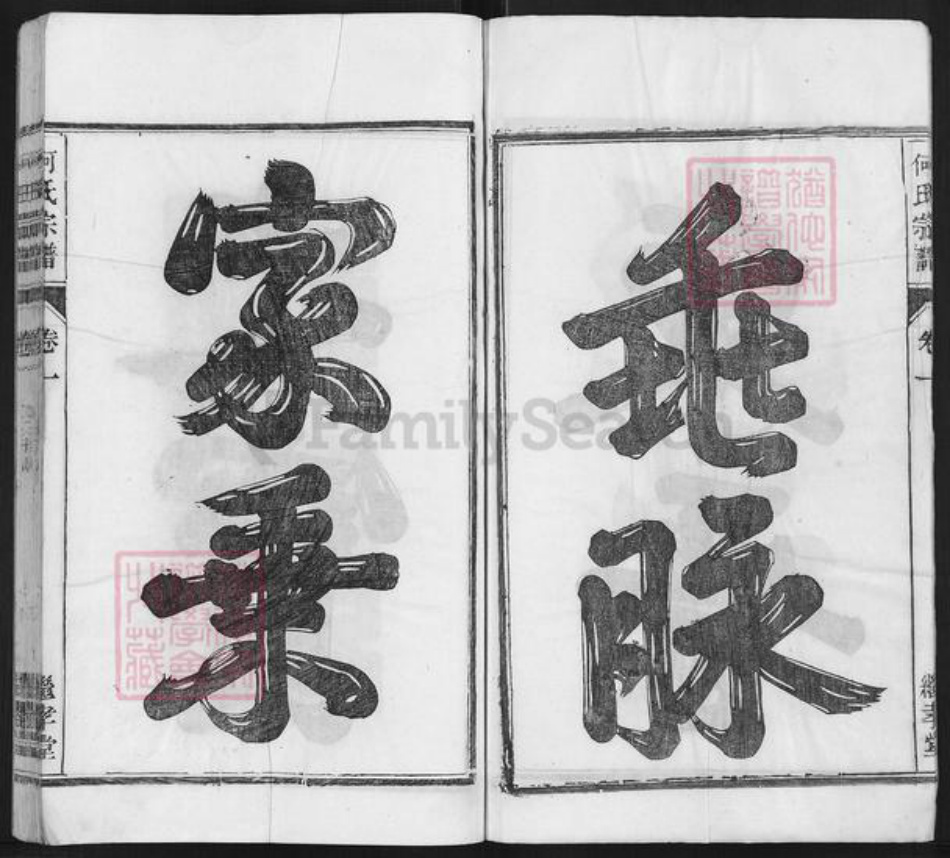 垂脉
家乘
何氏宗譜
卷一
繼孝堂
何氏宗譜
卷一
繼孝堂
FamilySearch